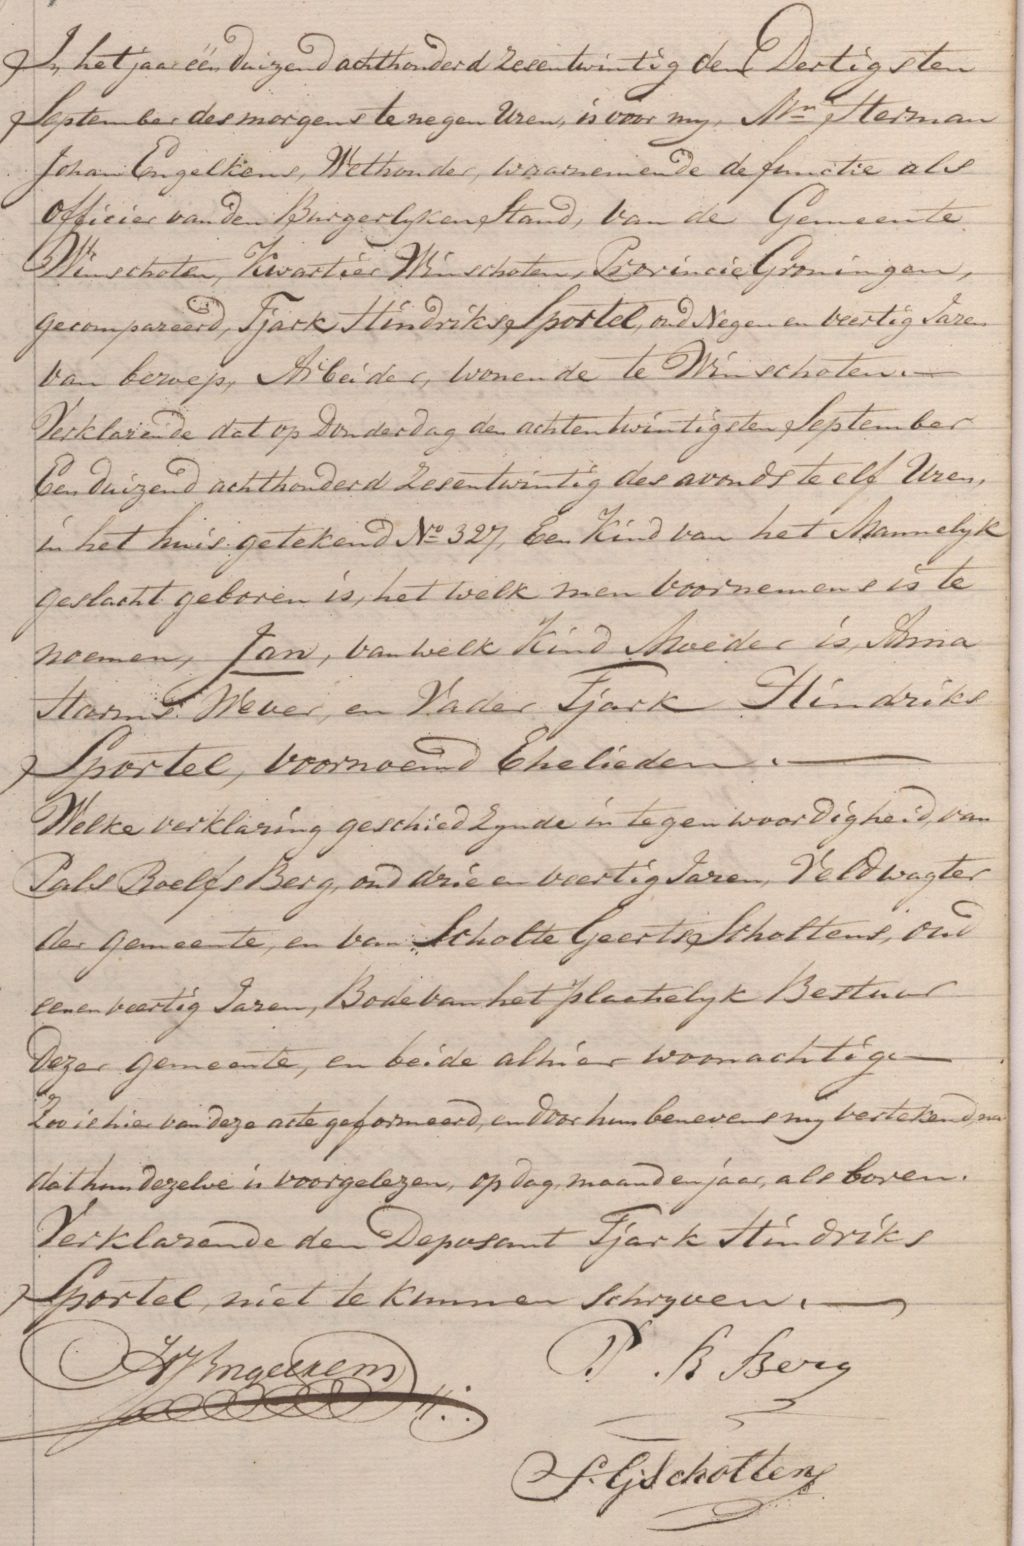 In het jaar één duizend achthonderd zesentwintig den Dertigsten
September des morgens te negen Uren, is voor my, Mr Herman
Johan Engelkens, Wethouder, waarnemende de functie als
Officier van den Burgerlyken Stand, van de Gemeente
Winschoten, Kwartier Winschoten, Provincie Groningen,
gecompareerd, Tjark Hindriks Sportel, oud Negen en veertig Jaren
van beroep, Arbeider, wonende te Winschoten. —
Verklarende dat op Donderdag den achtentwintigsten September
Een duizend achthonderd zesentwintig des avonds te elf Uren,
in het huis getekend No 327, Een Kind van het Mannelyk
geslacht geboren is, het welk men voornemens is te
noemen, Jan, van welk Kind Moeder is, Anna
Harms Wever, en Vader Tjark Hindriks
Sportel, voornoemd Ehelieden. —
Welke verklaring geschied zynde in tegenwoordigheid, van
Pals Roelfs Berg, oud drie en veertig Jaren, Veldwagter
der gemeente, en van Scholte Geerts Scholtens, oud
een en veertig Jaren, Bode van het plaatselyk Bestuur
Dezer gemeente, en beide alhier woonachtig —
Zoo is hier van deze acte geformeerd, en door hun benevens my vertekend, na
dat hun dezelve is voorgelezen, op dag, maand en jaar, als boven.
Verklarende den Deposant Tjark Hindriks
Sportel, niet te kunnen schryven. —
HJEngelkens
P. R Berg
S. G. Scholtens